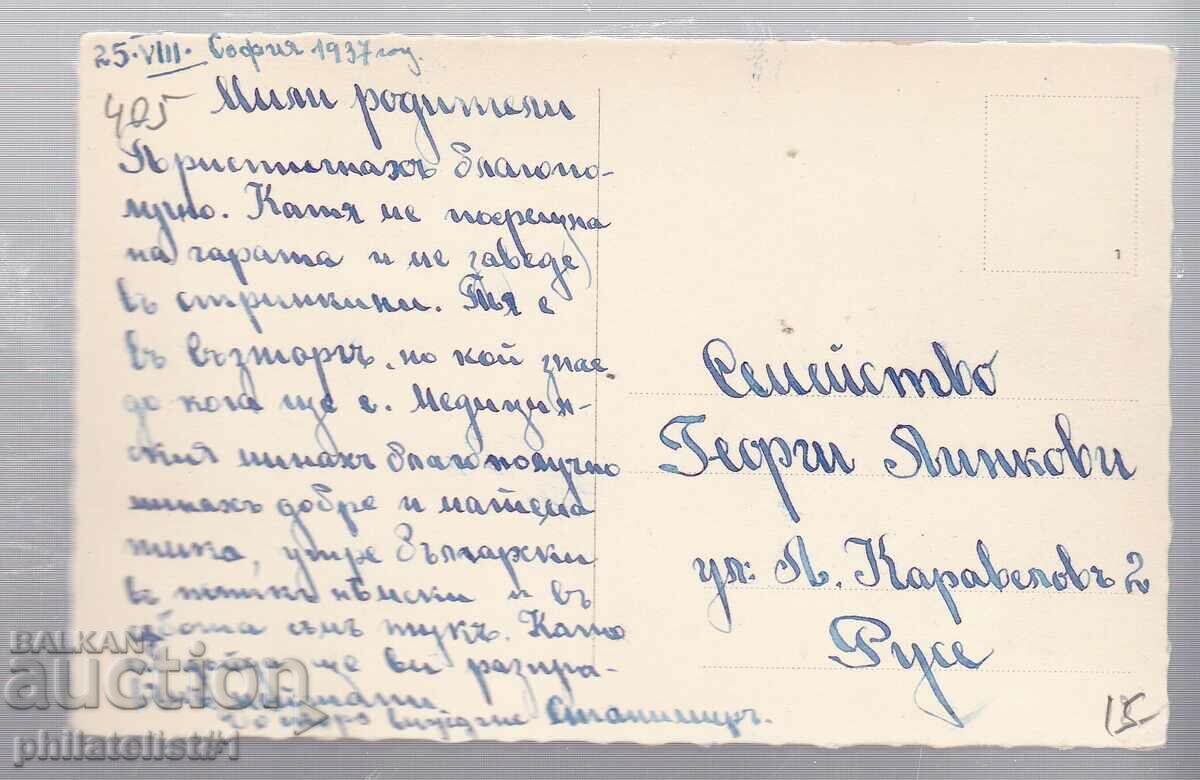 25·VIII· София 1937 год.
405
Мили родители
Пристигнахъ благопо-
лучно. Катя ме посрещна
на гарата и ме заведе
въ стринкини. Тя е
въ възторгъ, но кой знае
до кога ще е. Медицин-
ския минахъ благополучно
минахъ добре и матема
тика, утре български
въ петъкъ нѣмски и въ
събота съмъ тукъ. Като
дойда ще ви разпра-
До скоро виждане Станимиръ.
Семейство
Георги Линкови
ул: Л. Каравеловъ 2
Русе
15-
1
BALKAN
auction
philatelist#1